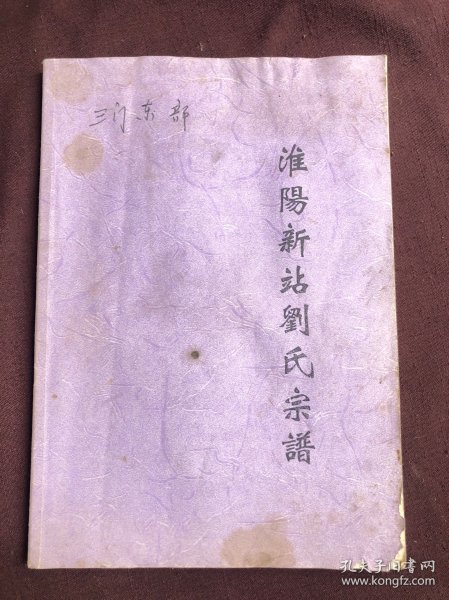 三门东部
淮陽新站劉氏宗譜
孔夫子旧书网
www.kongfz.com